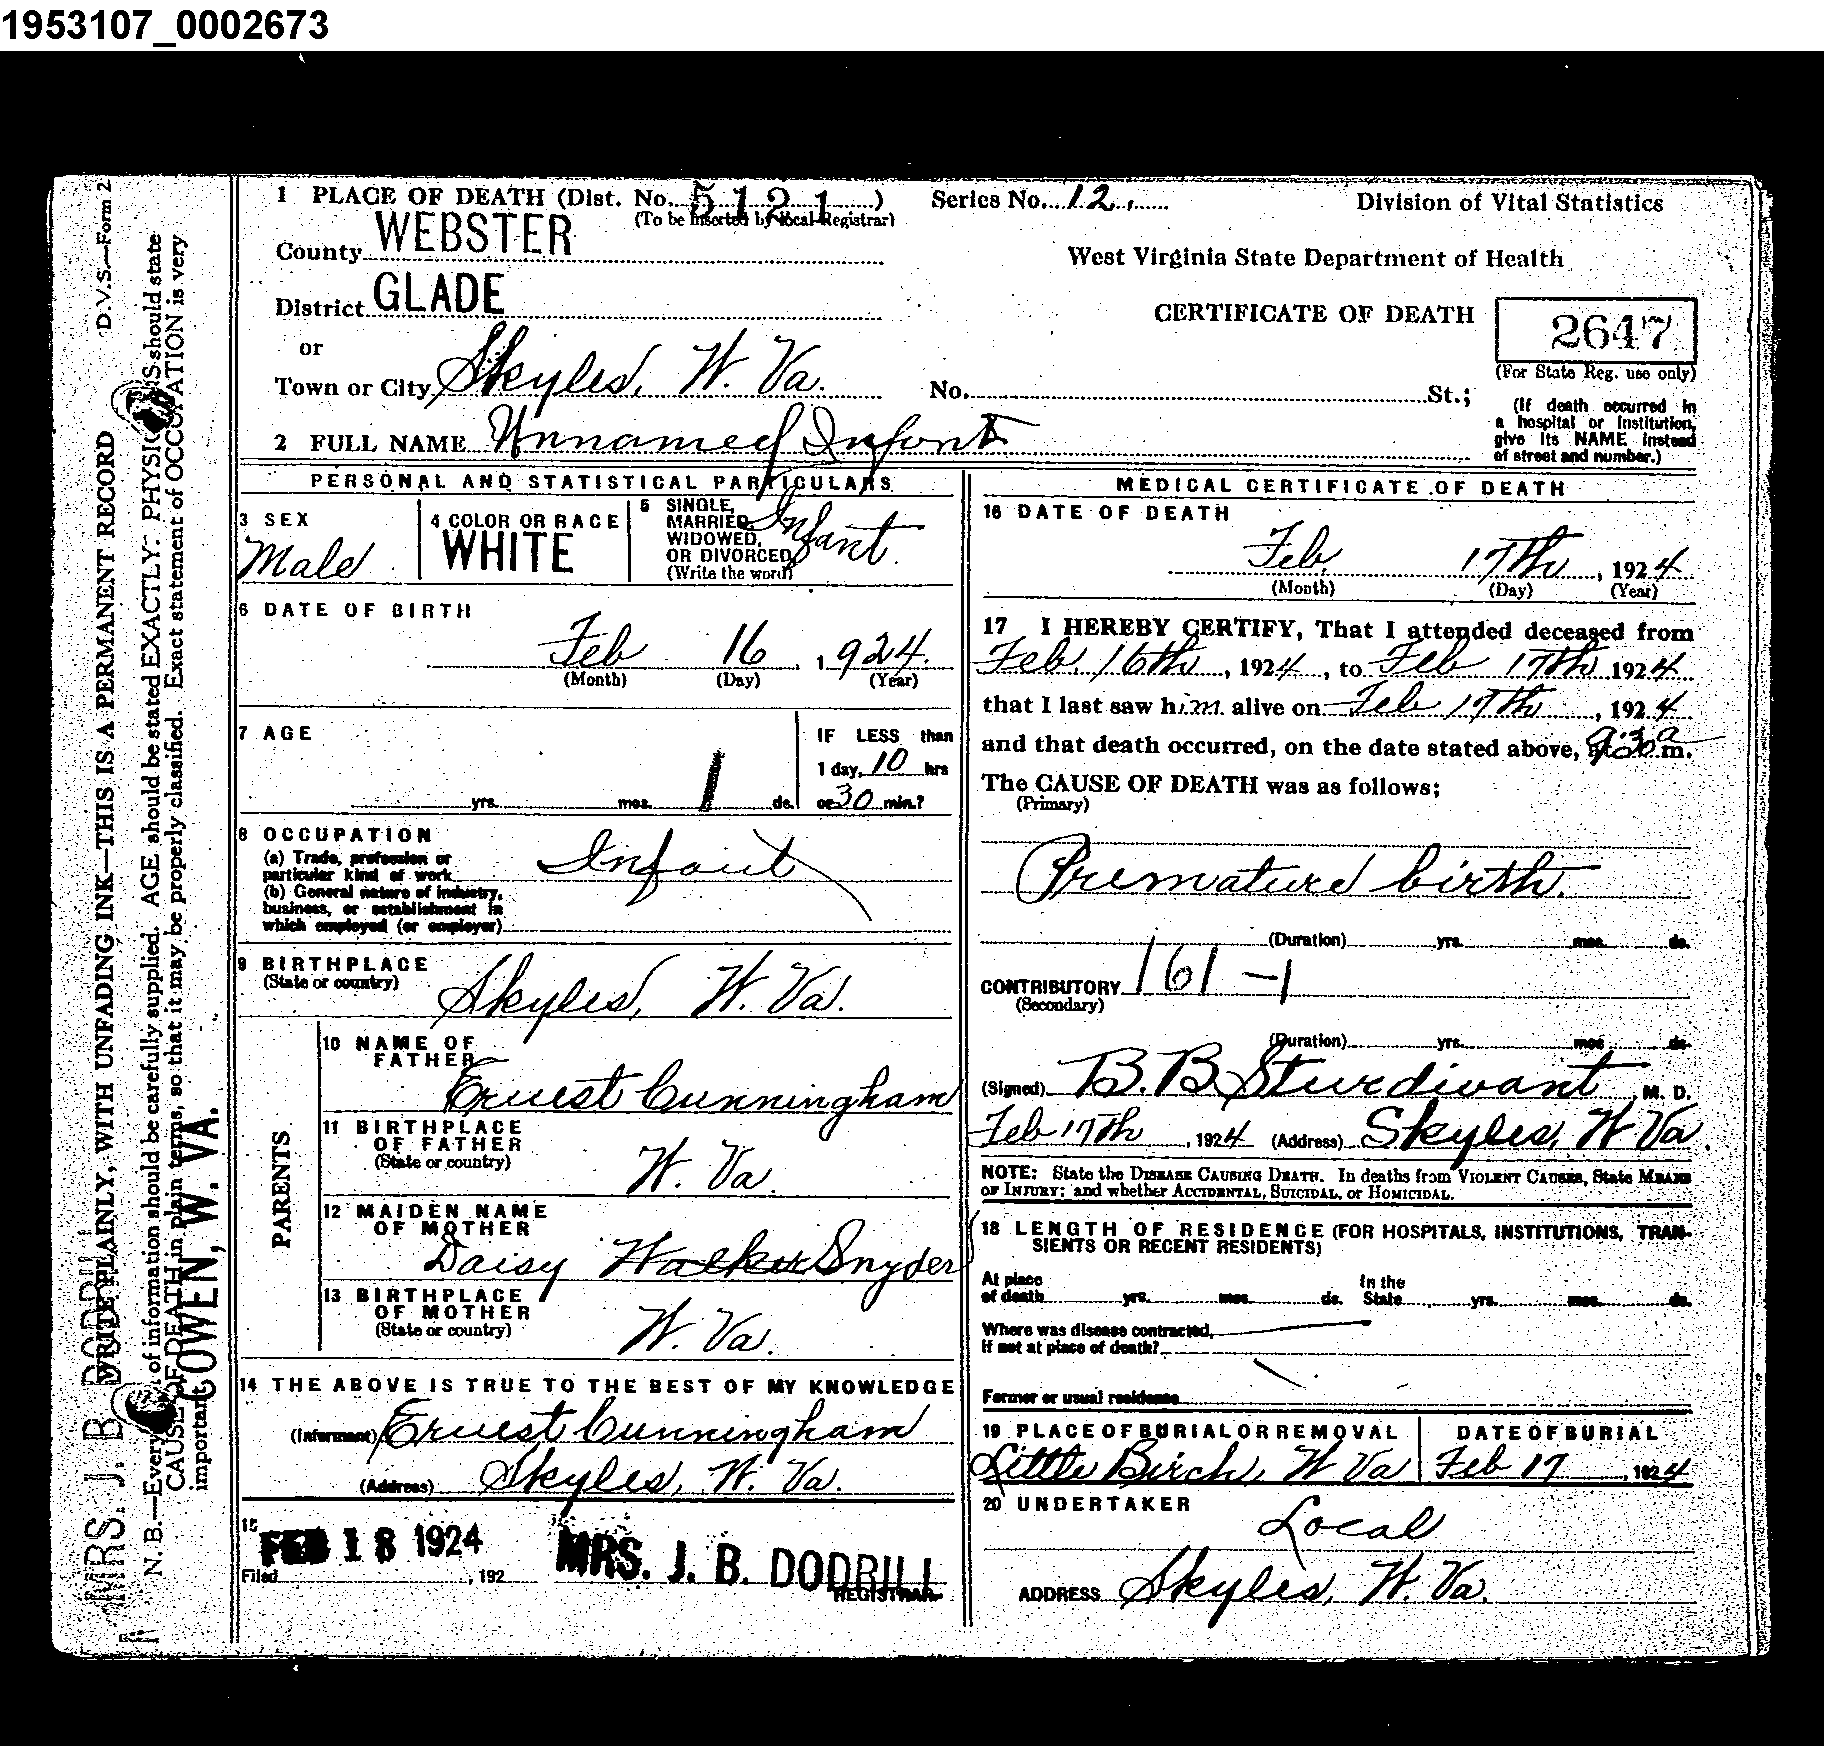 1953107_0002673
1 PLACE OF DEATH (Dist. No. 5121) Series No. 12. Division of Vital Statistics
(To be inserted by local Registrar)
County WEBSTER
West Virginia State Department of Health
District GLADE
CERTIFICATE OF DEATH 2647
or
(For State Reg. use only)
Town or City Skyles, W. Va. No. St.;
(If death occurred in
a hospital or institution,
give its NAME instead
of street and number.)
2 FULL NAME Unnamed Infant
PERSONAL AND STATISTICAL PARTICULARS
3 SEX
Male
4 COLOR OR RACE
WHITE
5 SINGLE,
MARRIED,
WIDOWED,
OR DIVORCED
(Write the word)
Infant
6 DATE OF BIRTH
Feb 16, 1924.
(Month) (Day) (Year)
7 AGE
yrs. mos. 1 ds.
IF LESS than
1 day, 10 hrs
or 30 min.?
8 OCCUPATION
(a) Trade, profession or
particular kind of work
(b) General nature of industry,
business, or establishment in
which employed (or employer)
Infant
9 BIRTHPLACE
(State or country)
Skyles, W. Va.
PARENTS
10 NAME OF
FATHER
Ernest Cunningham
11 BIRTHPLACE
OF FATHER
(State or country)
W. Va.
12 MAIDEN NAME
OF MOTHER
Daisy Walker Snyder
13 BIRTHPLACE
OF MOTHER
(State or country)
W. Va.
14 THE ABOVE IS TRUE TO THE BEST OF MY KNOWLEDGE
(Informant) Ernest Cunningham
(Address) Skyles, W. Va.
15
FEB 18 1924 MRS. J. B. DODRILL
Filed , 192 REGISTRAR
MEDICAL CERTIFICATE OF DEATH
16 DATE OF DEATH
Feb 17th, 1924
(Month) (Day) (Year)
17 I HEREBY CERTIFY, That I attended deceased from
Feb. 16th, 1924, to Feb 17th 1924
that I last saw him alive on Feb 17th, 1924
and that death occurred, on the date stated above, at 9:30 a m.
The CAUSE OF DEATH was as follows;
(Primary)
Premature birth.
(Duration) yrs. mos. ds.
CONTRIBUTORY 161-1
(Secondary)
(Duration) yrs. mos. ds.
(Signed) B. B. Sturdivant, M. D.
Feb 17th, 1924 (Address) Skyles, W Va.
NOTE: State the DISEASE CAUSING DEATH. In deaths from VIOLENT CAUSES, State MEANS
OF INJURY; and whether ACCIDENTAL, SUICIDAL, or HOMICIDAL.
18 LENGTH OF RESIDENCE (FOR HOSPITALS, INSTITUTIONS, TRAN-
SIENTS OR RECENT RESIDENTS)
At place In the
of death yrs. mos. ds. State yrs. mos. ds.
Where was disease contracted,
If not at place of death?
Former or usual residence
19 PLACE OF BURIAL OR REMOVAL
Little Birch, W Va
DATE OF BURIAL
Feb 17, 1924
20 UNDERTAKER
Local
ADDRESS Skyles, W. Va.
D.V.S.—Form 2
WRITE PLAINLY, WITH UNFADING INK—THIS IS A PERMANENT RECORD
N. B.—Every of information should be carefully supplied. AGE should be stated EXACTLY. PHYSIC S should state
CAUSE OF DEATH in plain terms, so that it may be properly classified. Exact statement of OCCUPATION is very
important.
MRS. J. B. DODRILL
COWEN, W. VA.